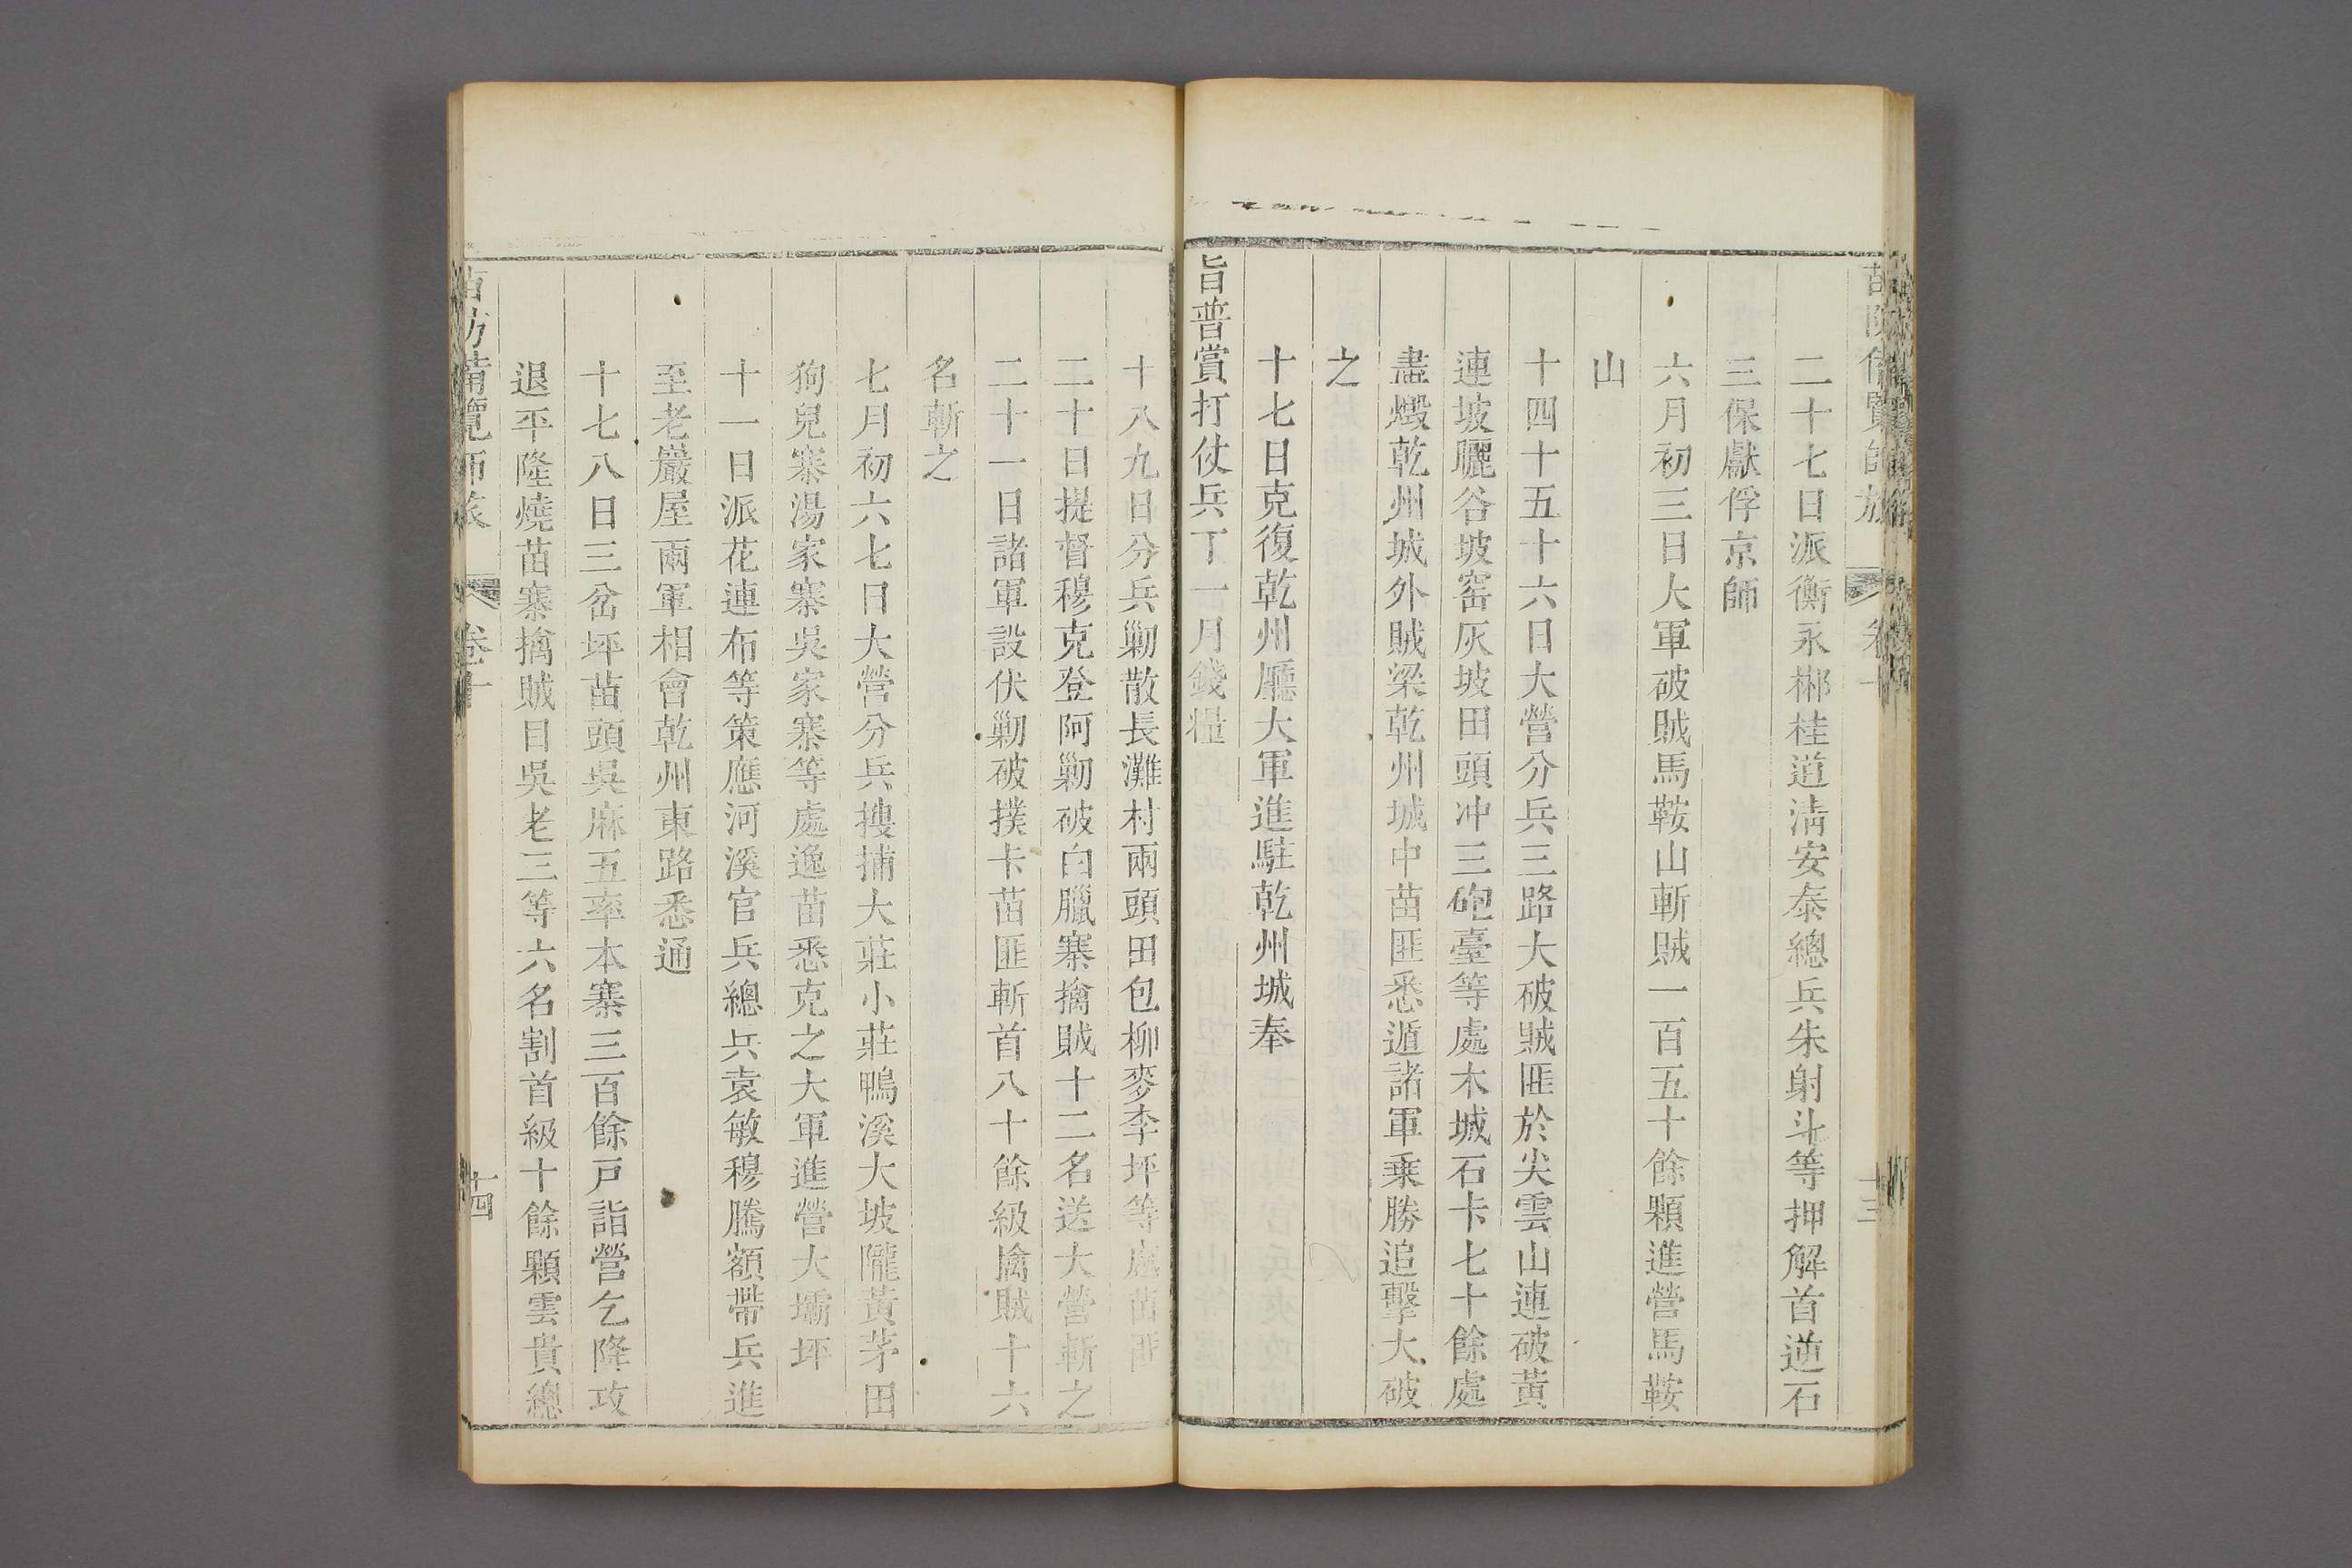 二十七日派衡永郴桂道淸安泰總兵朱射斗等押解首逆石
三保獻俘京師
六月初三日大軍破賊馬鞍山斬賊一百五十餘顆進營馬鞍
山
十四十五十六日大營分兵三路大破賊匪於尖雲山連破黃
連坡曬谷坡窑灰坡田頭冲三砲臺等處木城石卡七十餘處
盡燬乾州城外賊梁乾州城中苗匪悉遁諸軍乗勝追擊大破
之
十七日克復乾州廳大軍進駐乾州城奉
旨普賞打仗兵丁一月錢糧
十八九日分兵勦散長灘村兩頭田包柳麥李坪等處苗匪
二十日提督穆克登阿勦破白臘寨擒賊十二名送大營斬之
二十一日諸軍設伏勦破撲卡苗匪斬首八十餘級擒賊十六
名斬之
七月初六七日大營分兵搜捕大莊小莊鴨溪大坡隴黃茅田
狗兒寨湯家寨吳家寨等處逸苗悉克之大軍進營大壩坪
十一日派花連布等策應河溪官兵總兵袁敏穆騰額帶兵進
至老巖屋兩軍相會乾州東路悉通
十七八日三岔坪苗頭吳麻五率本寨三百餘戸詣營乞降攻
退平隆燒苗寨擒賊目吳老三等六名割首級十餘顆雲貴總
苗防備覽師旅 卷十 十四